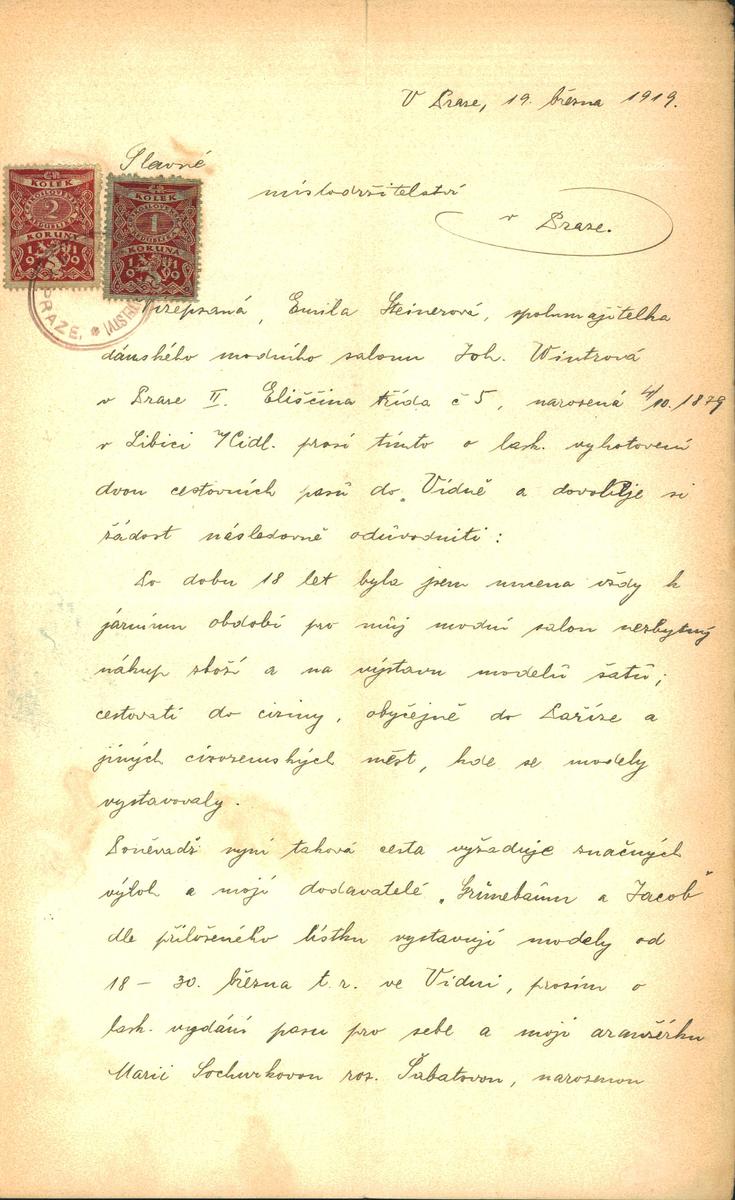 V Praze, 19. března 1919.
Slavné
místodržitelství
v Praze.
KOLEK
2
KORUNY
1919
KOLEK
1
KORUNA
1919
PRAZE.
Vizepsaná, Emila Steinerová, spolumajitelka
dámského modního salonu Joh. Wintrová
v Praze II. Eliščina třída č 5, narozená 4/10. 1879
v Libici n/Cidl. prosí tímto o lask. vyhotovení
dvou cestovních pasů do Vídně a dovoluje si
žádost následovně odůvodniti:
Po dobu 18 let byla jsem nucena vždy k
jarnímu období pro můj modní salon nezbytný
nákup zboží a na výstavu modelů šatů;
cestovati do ciziny, obyčejně do Paříže a
jiných cizozemských měst, kde se modely
vystavovaly.
Poněvadž nyní taková cesta vyžaduje značných
výloh a moji dodavatelé „Grünebaum a Jacob"
dle přiloženého lístku vystavují modely od
18 – 30. března t.r. ve Vídni, prosím o
lask. vydání pasu pro sebe a moji aranžérku
Marii Sochurkovou roz. Šabatovou, narozenou